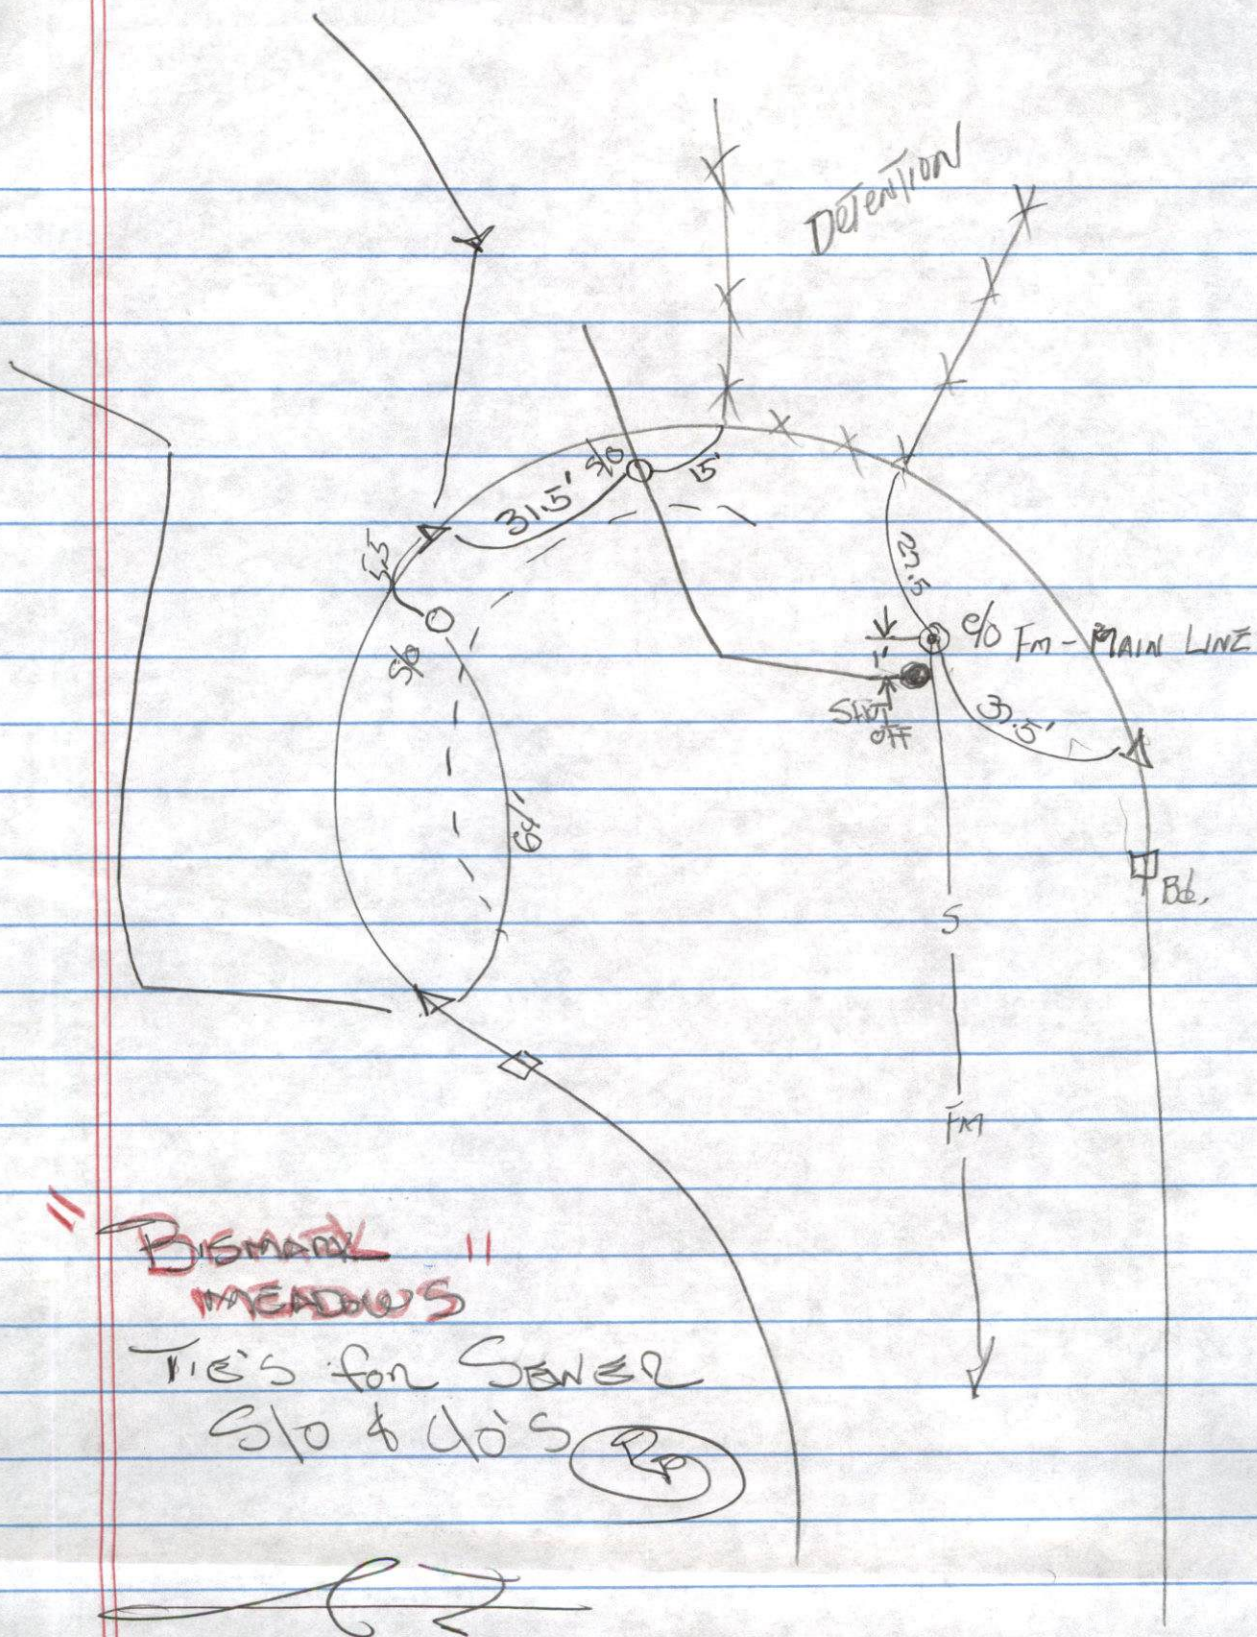 Detention
31.5' S/O
15'
5.5
S/O
27.5
1'
C/O FM - MAIN LINE
SHUT
OFF
64'
Bd.
S
FM
"BISMARK
MEADOWS"
TIE'S for SEWER
S/O & C/O'S
RP